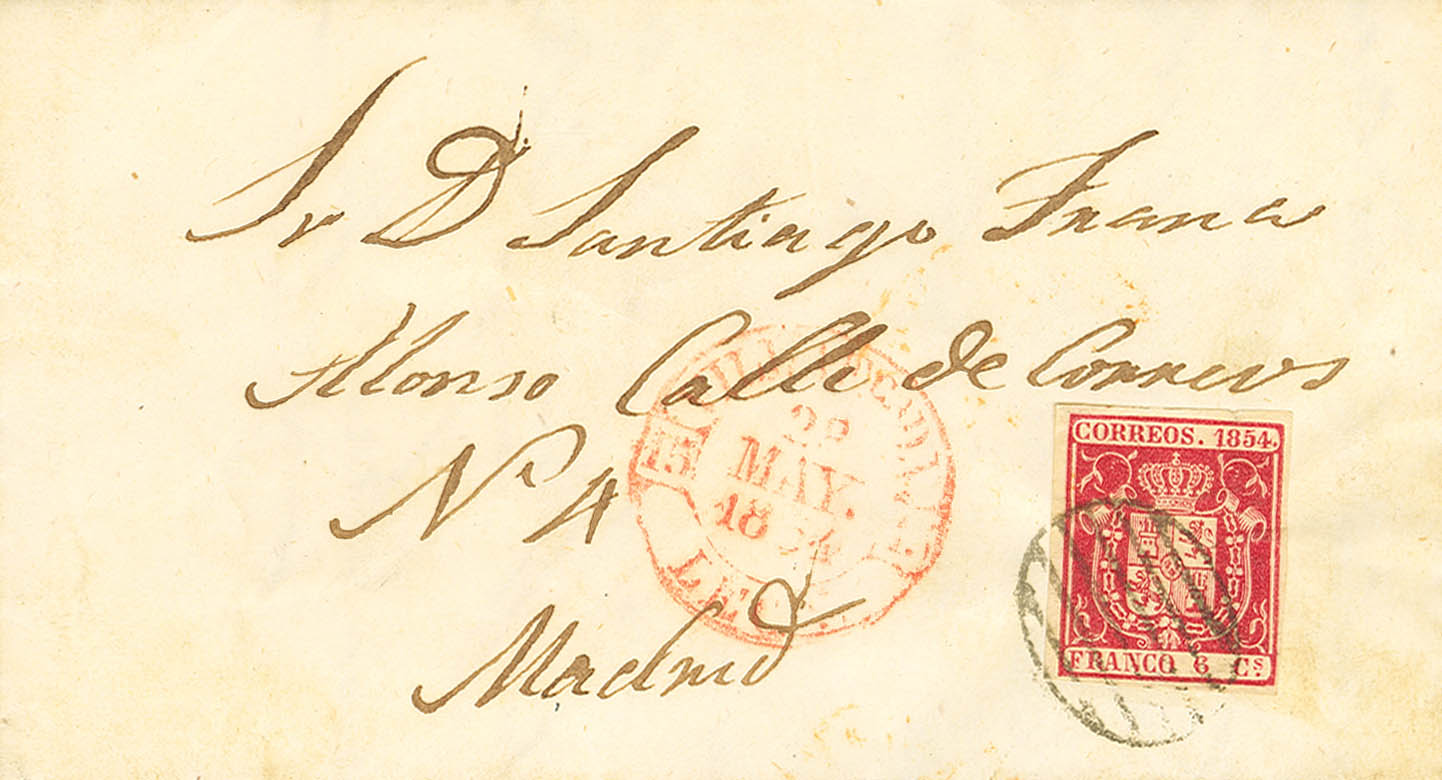 Sr D Santiago Franco
Alonso Calle de Correos
Nº 4
Madrid
15
MAY.
1854
CORREOS. 1854.
FRANCO 6 Cs.